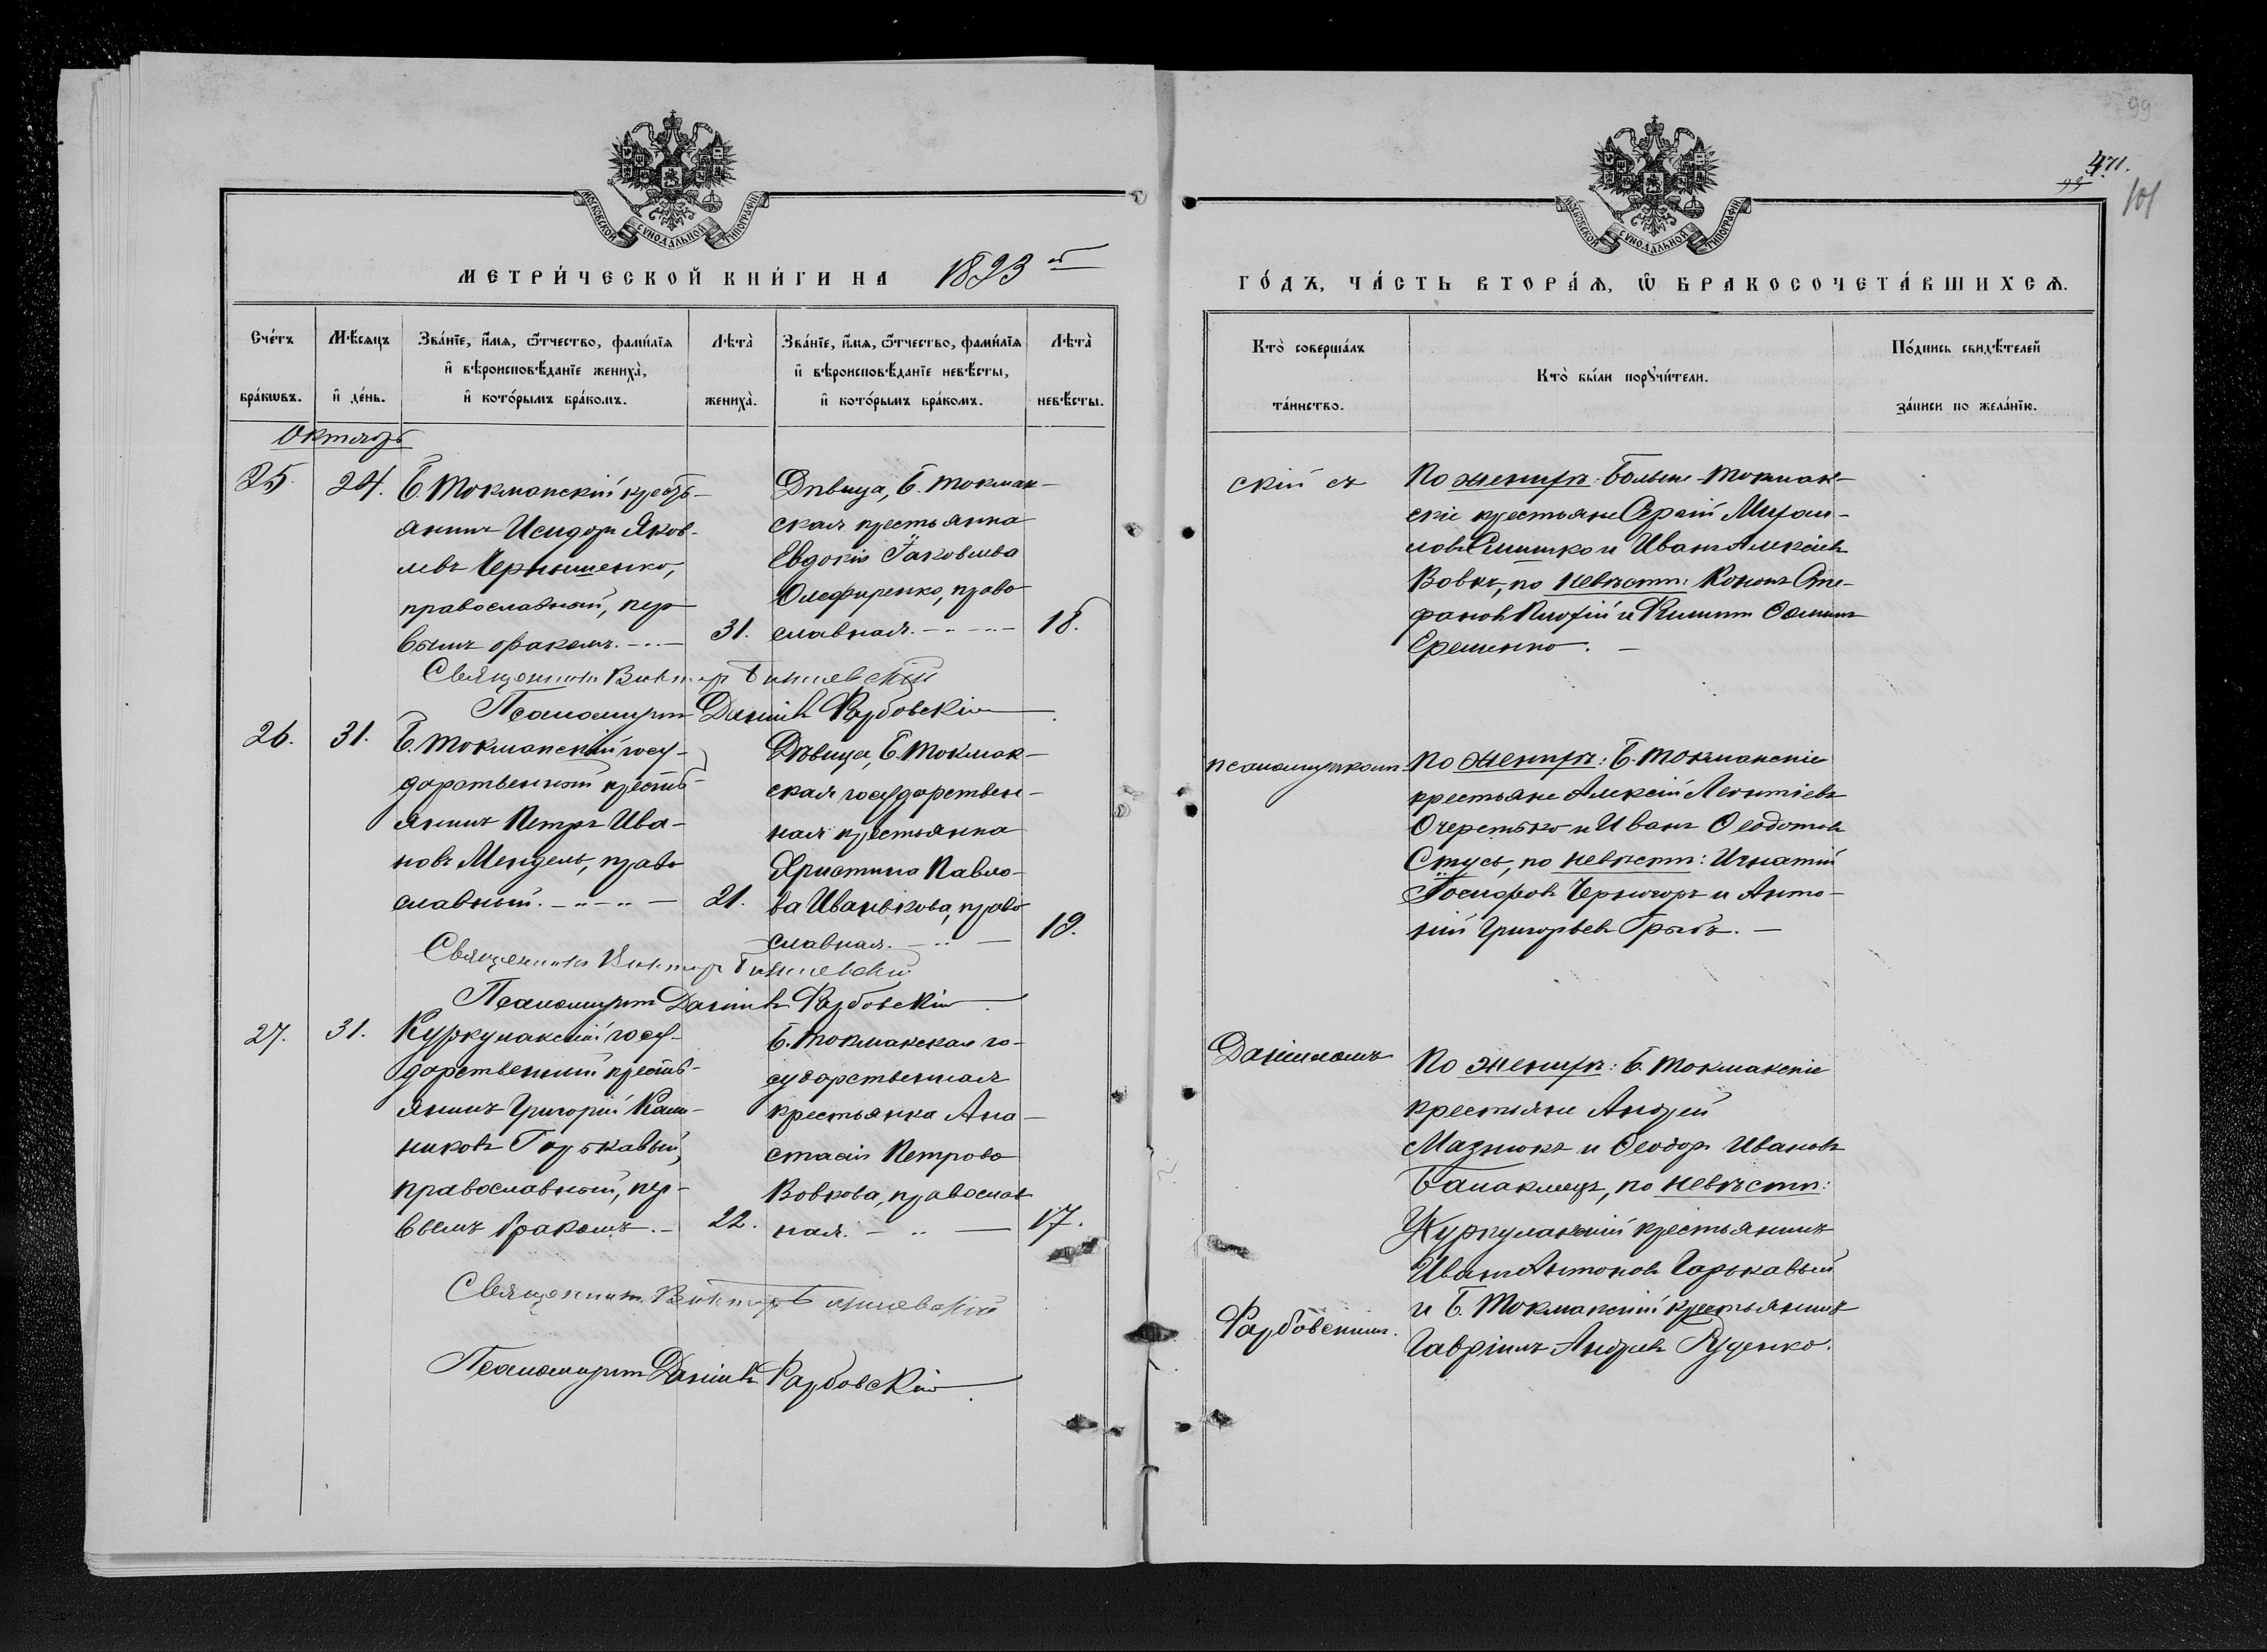 99
471.
99
101
МОСКОВСКОЙ СѴНОДАЛЬНОЙ ТИПОГРАФІИ
МЕТРИ́ЧЕСКОЙ КНИ́ГИ НА 1893 й
Сче́тъ бра́кѡвъ.
Мѣ́сяцъ и҆ де́нь.
Зва́нїе, и҆́мѧ, ѻ҆́тчество, фами́лїѧ
и҆ вѣроисповѣ́данїе жениха̀,
и҆ кото́рымъ бра́комъ.
Лѣта̀ жениха̀.
Зва́нїе, и҆́мѧ, ѻ҆́тчество, фами́лїѧ
и҆ вѣроисповѣ́данїе невѣ́сты,
и҆ кото́рымъ бра́комъ.
Лѣта̀ невѣ́сты.
Октябрь
25.
24.
Б. Токмакскій кресть-
янинъ Исидоръ Яков-
левъ Чернышенко,
православный, пер
вымъ бракомъ.
31.
Дѣвица, Б. Токмак-
ская крестьянка
Евдокія Іаковлева
Олефиренко, право
славная.
18.
Священникъ Викторъ
Псаломщикъ Даніилъ Фарбовскій
26.
31.
Б. Токмакскій госу-
дарственный кресть-
янинъ Петръ Ива-
новъ Мендель, право
славный.
21.
Дѣвица, Б. Токмак-
ская государствен-
ная крестьянка
Христина Павло-
ва Иванькова, право
славная.
19.
Священникъ Викторъ
Псаломщикъ Даніилъ Фарбовскій
27.
31.
Куркулакскій госу-
дарственный кресть-
янинъ Григорій Кали-
никовъ Горькавый,
православный, пер-
вымъ бракомъ.
22.
Б. Токмакская го-
сударственная
крестьянка Ана-
стасія Петрова
Вовкова, православ
ная.
17.
Священникъ Викторъ
Псаломщикъ Даніилъ Фарбовскій
МОСКОВСКОЙ СѴНОДАЛЬНОЙ ТИПОГРАФІИ
ГО́ДЪ, ЧА́СТЬ ВТОРА́Ѧ, Ѡ҆ БРАКОСОЧЕТА́ВШИХСѦ.
Кто̀ соверша́лъ
та́инство.
Кто̀ бы́ли порꙋчи́тели.
По́дпись свидѣ́телей
за́писи по жела́нїю.
скій съ
По женихѣ: Больше-Токмак-
скіе крестьяне Сергій Михаи-
ловъ и Иванъ Алексѣевъ
Вовкъ, по невѣстѣ: Кононъ Сте-
фановъ и Филиппъ
Еременко.
псаломщикомъ
По женихѣ: Б. Токмакскіе
крестьяне Алексій Леонтіевъ
Очеретько и Иванъ Ѳеодотовъ
Стусь, по невѣстѣ: Игнатій
Іосифовъ и Анто-
ній Григорьевъ Грыбъ.
Даніиломъ
По женихѣ: Б. Токмакскіе
крестьяне Андрей
Мазнюкъ и Ѳеодоръ Ивановъ
по невѣстѣ:
Куркулакскій крестьянинъ
Иванъ Антоновъ Горькавый
Фарбовскимъ.
и Б. Токмакскій крестьянинъ
Гавріилъ Андреевъ Руденко.